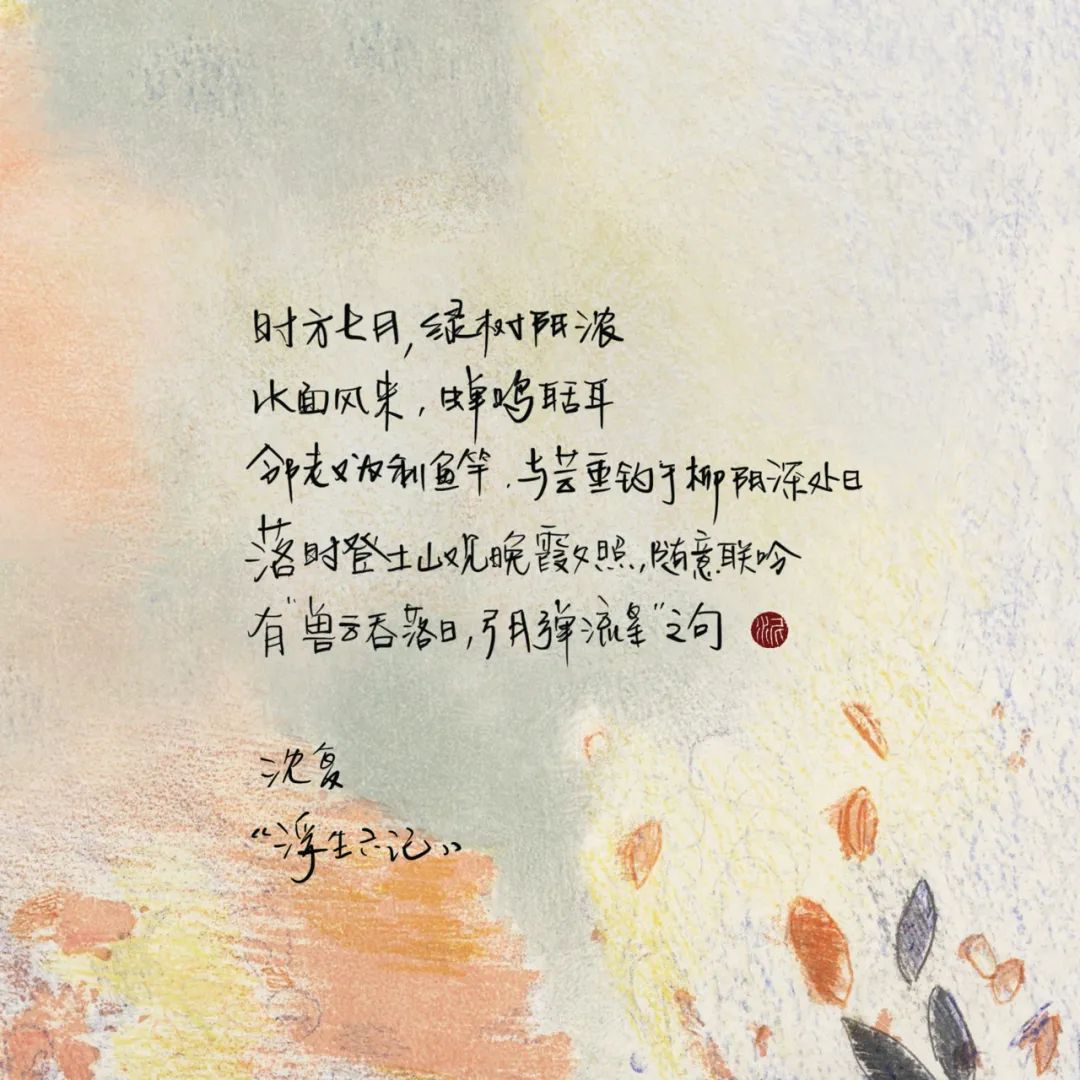 时方七月,绿树阴浓
水面风来,蝉鸣聒耳
邻老又为制鱼竿.与芸垂钓于柳阴深处日
落时登土山观晚霞夕照,随意联吟
有"兽云吞落日,弓月弹流星"之句
沈复
"浮生六记"